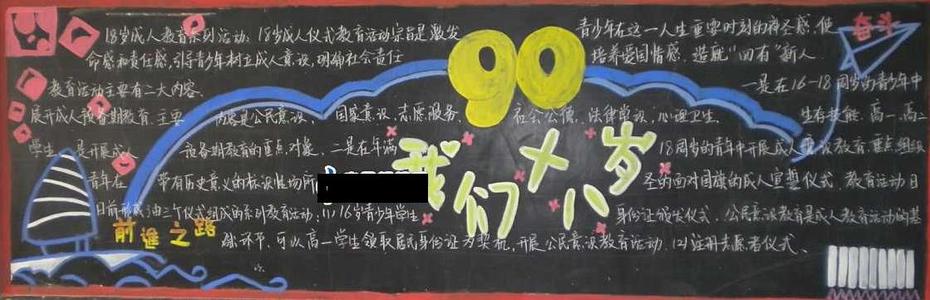 18岁成人教育系列活动: 18岁成人仪式教育活动宗旨是激发
青少年在这一人生重要时刻的神圣感,使
命感和责任感,引导青少年树立成人意识,明确社会责任
培养爱国情感,造就“四有”新人.
教育活动主要有二大内容.
一是在16-18周岁的青少年中
展开成人预备期教育,主要
内容是公民意识、
国家意识、志愿服务、
社会公德、法律常识、心理卫生、
生存技能.高一、高二
学生
是开展成人
预备期教育的重点对象,
二是在年满
18周岁的青年中开展成人
教育,重点组织
青年在
带有历史意义的标识性场所
圣的面对国旗的成人宣誓仪式,教育活动日
目前形成由三个仪式组成的系列教育活动:(1)16岁青少年学生
身份证颁发仪式,公民意识教育是成人教育活动的基
础环节,可以高一学生领取居民身份证为契机,开展公民意识教育活动.(2)注册志愿者仪式.
90
我们十八岁
奋斗
前進之路